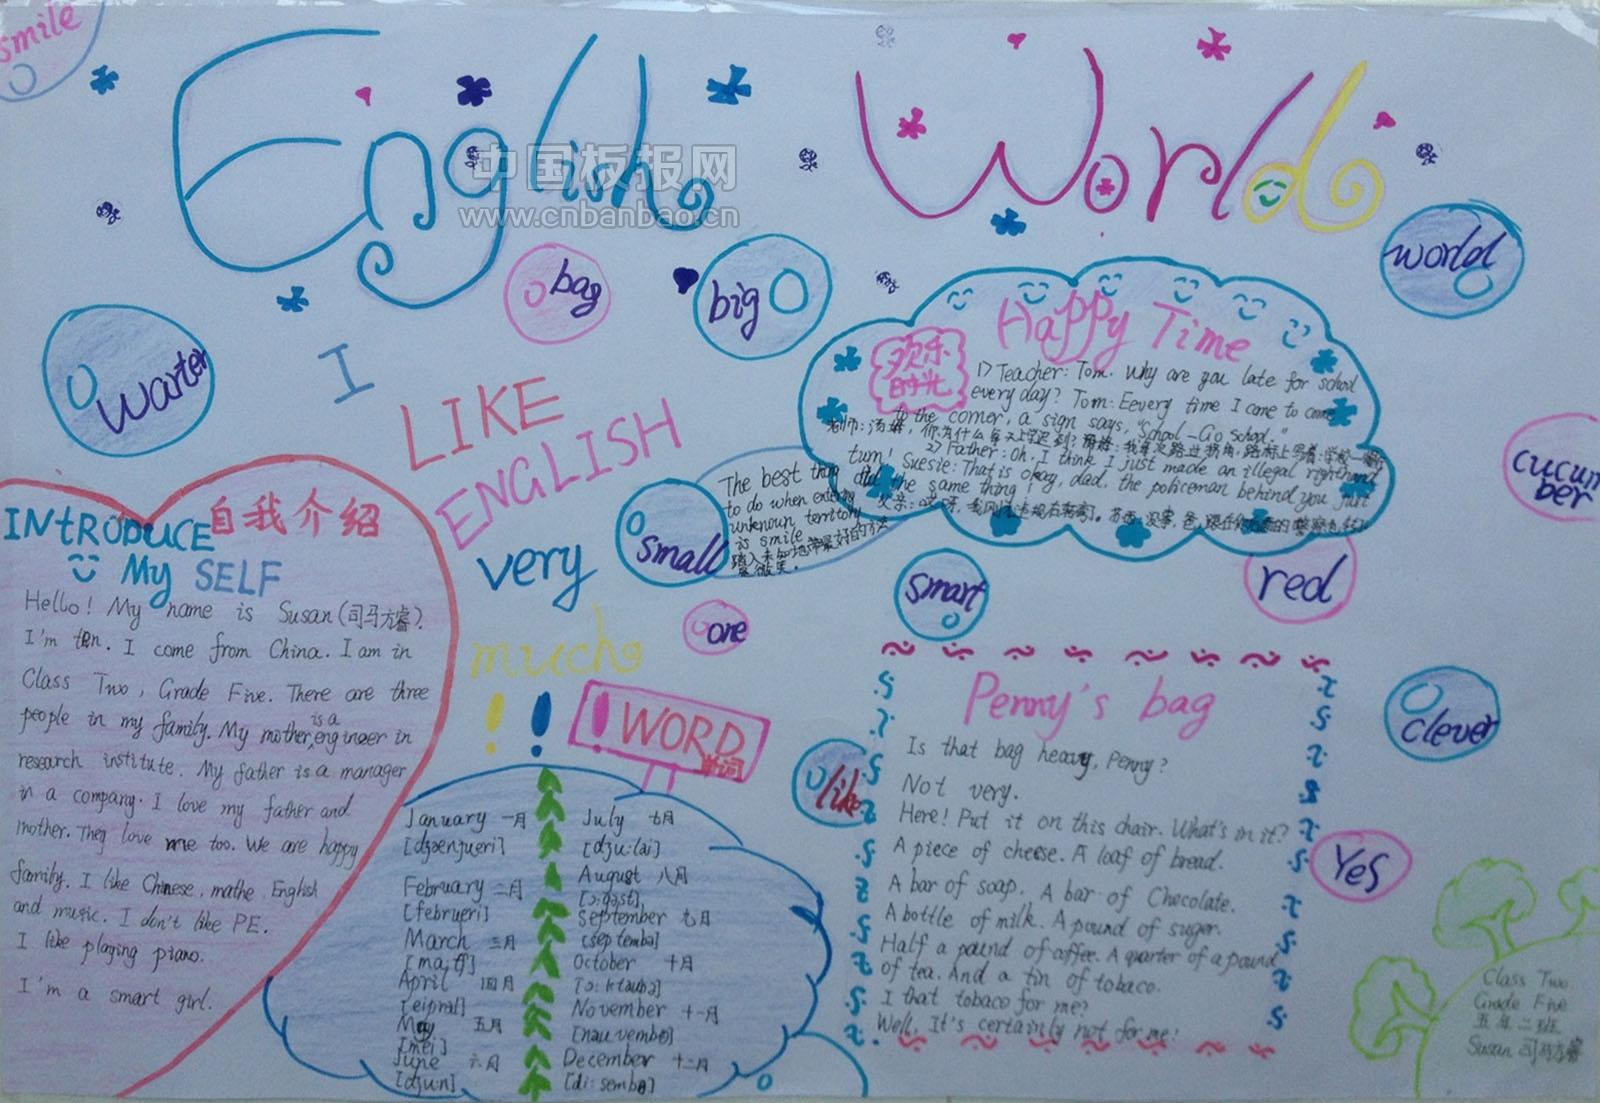 smile
English World
中国板报网
www.cnbanbao.cn
bag
big
world
warter
I
LIKE
ENGLISH
very
much
! ! !
Happy Time
欢乐
时光
1) Teacher: Tom. Why are you late for school
every day? Tom: Eevery time I come to come
to the corner, a sign says, "School-Go School."
老师:汤姆,你为什么每天上学迟到?
我每次路过拐角,路标上写着:学校
2) Father: Oh. I think I just made an illegal right-hand
turn! Suesie: That is okay, dad. the policeman behind you just
did the same thing!
父亲:哎呀,我刚才违规右转弯了。苏西:没事,爸
The best thing
to do when entering
unknown territory
is smile.
踏入未知地带最好的方法
是微笑。
small
smart
one
red
cucum
ber
clever
like
Yes
INtRODUCE 自我介绍
My SELF
Hello! My name is Susan (司马方睿).
I'm ten. I come from China. I am in
Class Two, Grade Five. There are three
people in my family. My mother is a engineer in
research institute. My father is a manager
in a company. I love my father and
mother. They love me too. We are happy
family. I like Chinese, mathe English
and music. I don't like PE.
I like playing piano.
I'm a smart girl.
WORD
单词
January 一月
[dʒænjueri]
February 二月
[februeri]
March 三月
[ma:tʃ]
April 四月
[eiprəl]
May 五月
[mei]
June 六月
[dʒu:n]
July 七月
[dʒu:lai]
August 八月
[ɔ:gəst]
September 九月
[septembə]
October 十月
[ɔ:ktəubə]
November 十一月
[nəuvembə]
December 十二月
[di:sembə]
Penny's bag
Is that bag heavy, Penny?
Not very.
Here! Put it on this chair. What's in it?
A piece of cheese. A loaf of bread.
A bar of soap. A bar of Chocolate.
A bottle of milk. A pound of suger.
Half a pound of coffee. A quarter of a pound
of tea. And a tin of tobaco.
I that tobaco for me?
Well, It's certainly not for me!
Class Two
Grade Five
五年二班
Susan 司马方睿